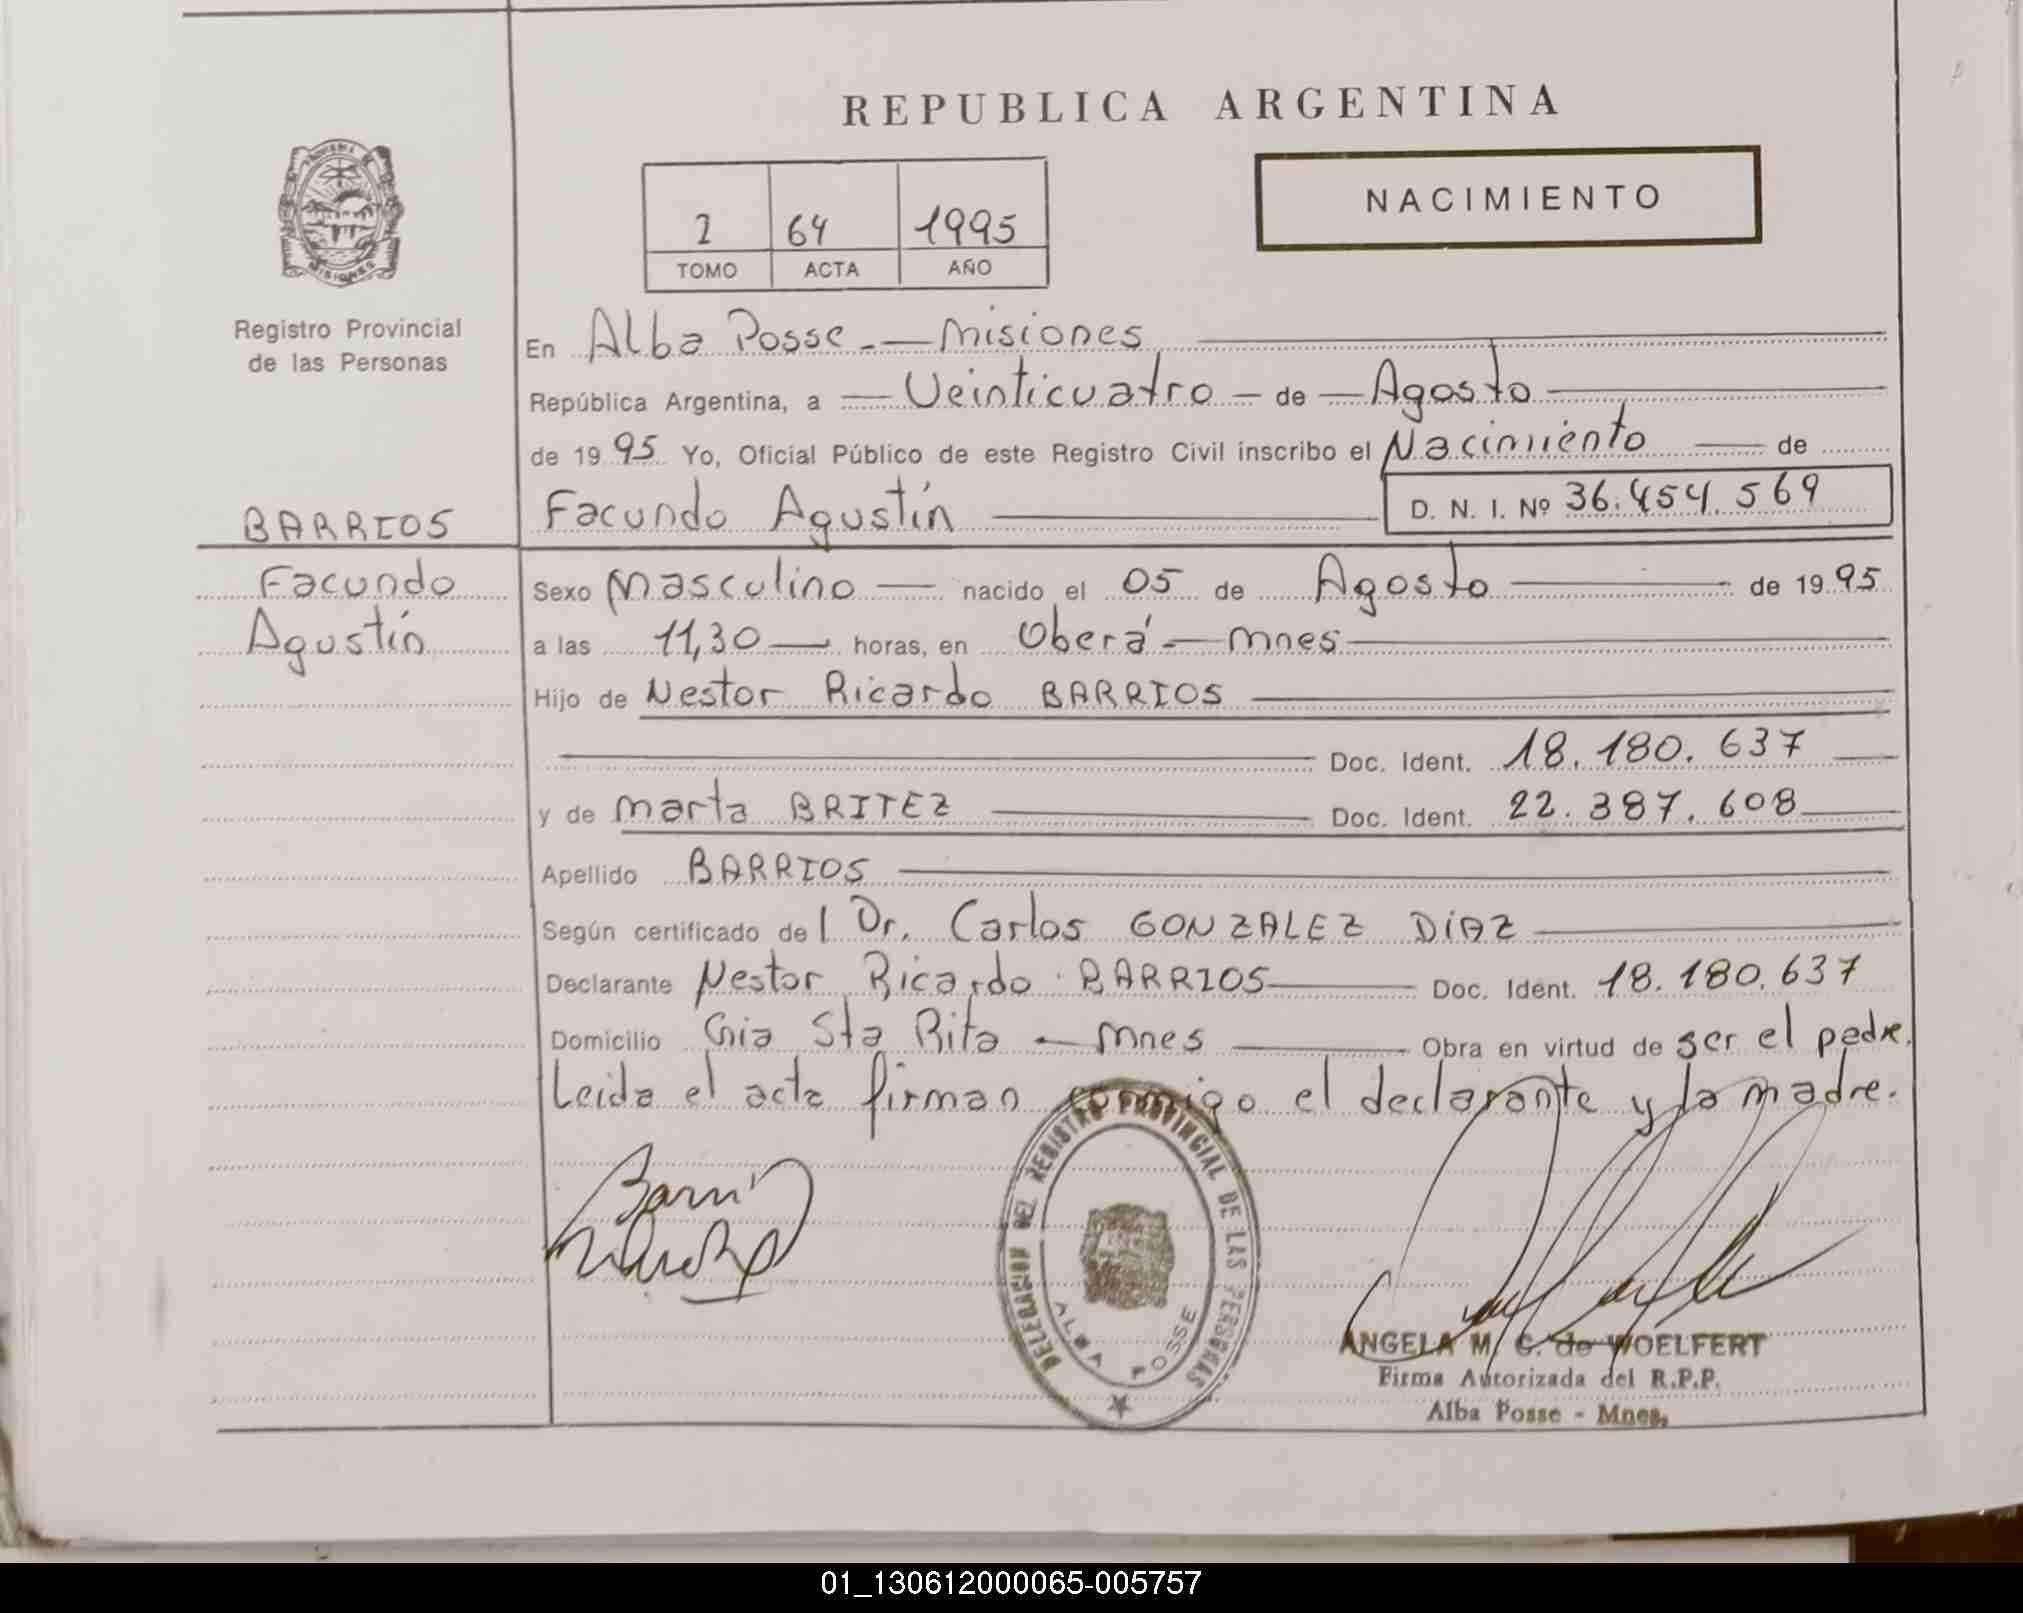 REPUBLICA ARGENTINA
NACIMIENTO
2 64 1995
TOMO ACTA AÑO
PROVINCIA DE
MISIONES
Registro Provincial
de las Personas
En Alba Posse.- Misiones
República Argentina, a Veinticuatro de Agosto
de 19 95 Yo, Oficial Público de este Registro Civil inscribo el Nacimiento de
BARRIOS
Facundo Agustín
D. N. I. Nº 36.454.569
Facundo
Agustín
Sexo Masculino nacido el 05 de Agosto de 19 95
a las 11,30 horas, en Oberá - Mnes
Hijo de Nestor Ricardo BARRIOS
Doc. Ident. 18.180.637
y de Marta BRITEZ Doc. Ident. 22.387.608
Apellido BARRIOS
Según certificado del Dr. Carlos GONZALEZ DíAZ
Declarante Nestor Ricardo BARRIOS Doc. Ident. 18.180.637
Domicilio Cnia Sta Rita - Mnes Obra en virtud de ser el padre.
Leida el acta firman conmigo el declarante y la madre.
DELEGACION DEL REGISTRO PROVINCIAL DE LAS PERSONAS
ALBA POSSE
ANGELA M. G. de WOELFERT
Firma Autorizada del R.P.P.
Alba Posse - Mnes.
01_130612000065-005757